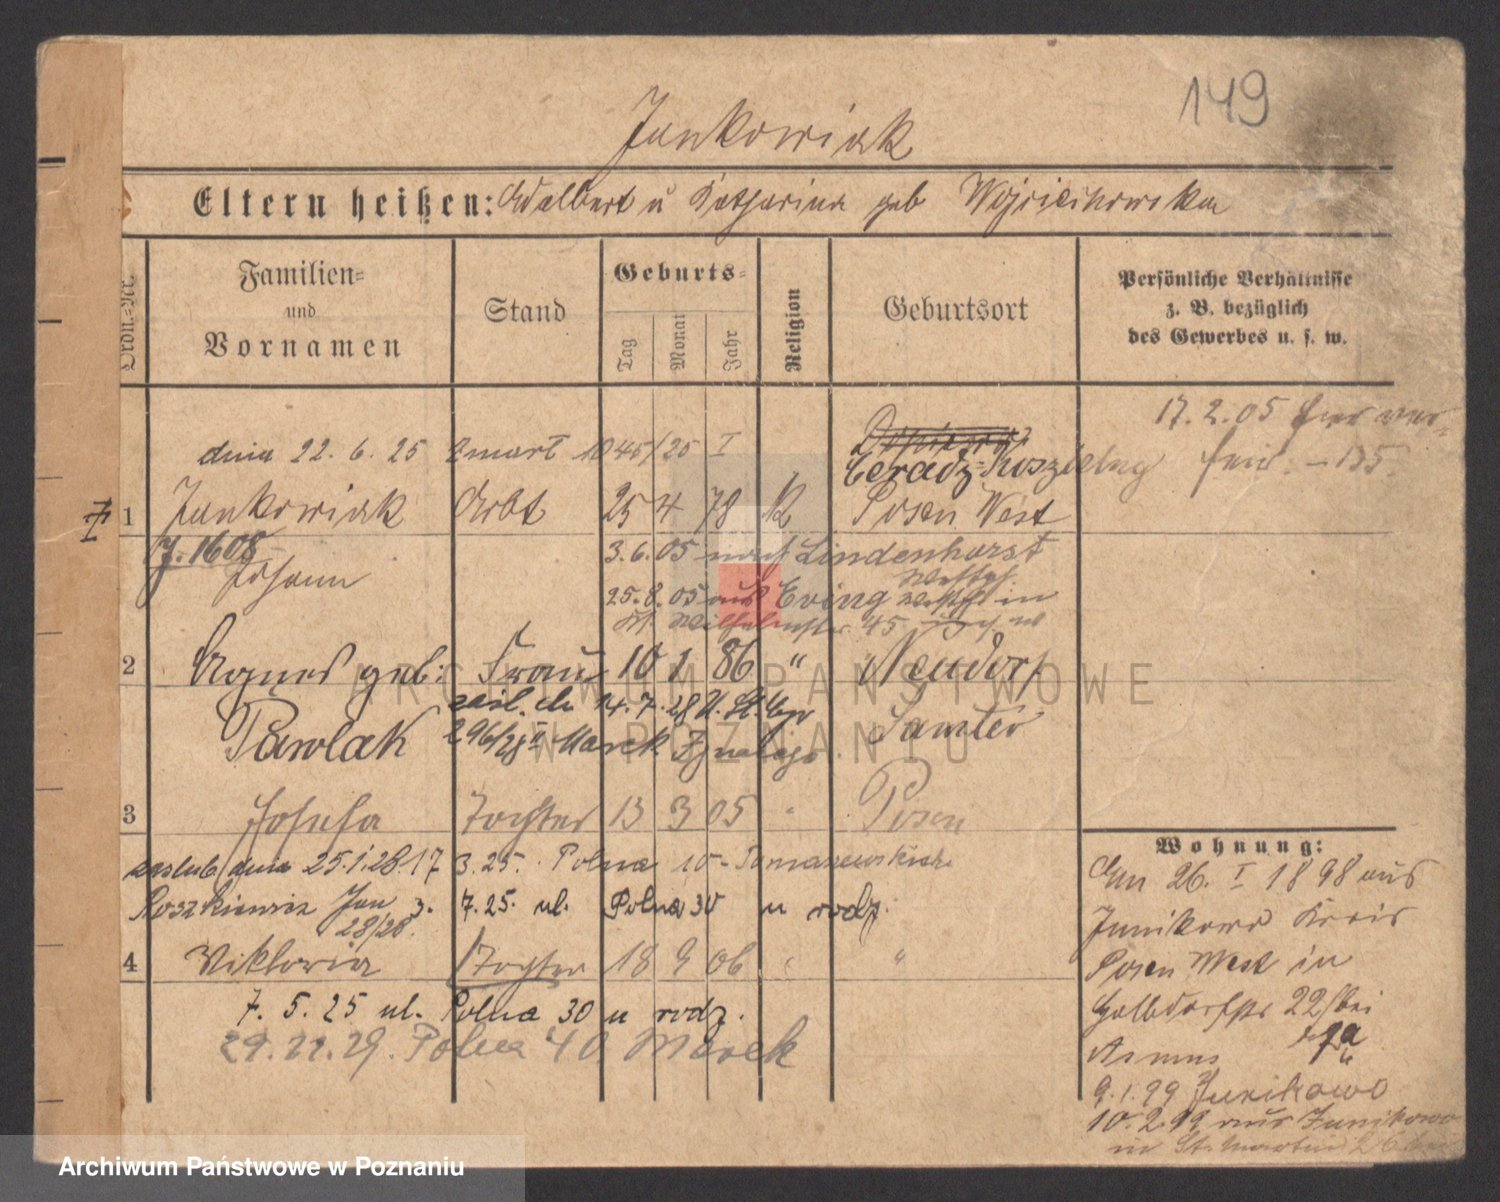 149
Jankowiak
Eltern heißen: Adalbert u Katharina geb Wojciechowska
Ordn.-Nr.
Familien- und Vornamen
Stand
Geburts-
Tag
Monat
Jahr
Religion
Geburtsort
Persönliche Verhältnisse
z. B. bezüglich
des Gewerbes u. s. w.
17. 2. 05
dnia 22. 6. 25 zmarł 1045/25 I
Ceradz-Koszielny
1 Jankowiak Arbt 25 4 78 K Posen West
J. 1608
Johann
3. 6. 05 nach Lindenhorst
25. 8. 05 aus Eving Westf. in
45
2 Agnes geb: Frau 10 1 86 " Neudorf
Pawlak
Samter
zaśl. dn 14. 7. 28 U. St. Cyw
296/28 II Marek Ignacego
3 Josefa Tochter 13 3 05 " Posen
zaślub dnia 25.1.28. 17 3. 25. Polna 10 - Tomaszewskich
Roszkiewicz Jan 3. 7. 25. ul. Polna 30 u rodz.
28/28.
4 Viktoria Tochter 18 9 06 " "
7. 5. 25 ul. Polna 30 u rodz.
29. 11. 29. Polna 40 Marek
Wohnung:
Am 26. I 1898 aus
Junikowo Kreis
Posen West in
22 bei
Asmus
9. 1. 99 Junikowo
10. 2. 99 aus Junikowo
in St. Martin 26 bei
ARCHIWUM PAŃSTWOWE
W POZNANIU
Archiwum Państwowe w Poznaniu